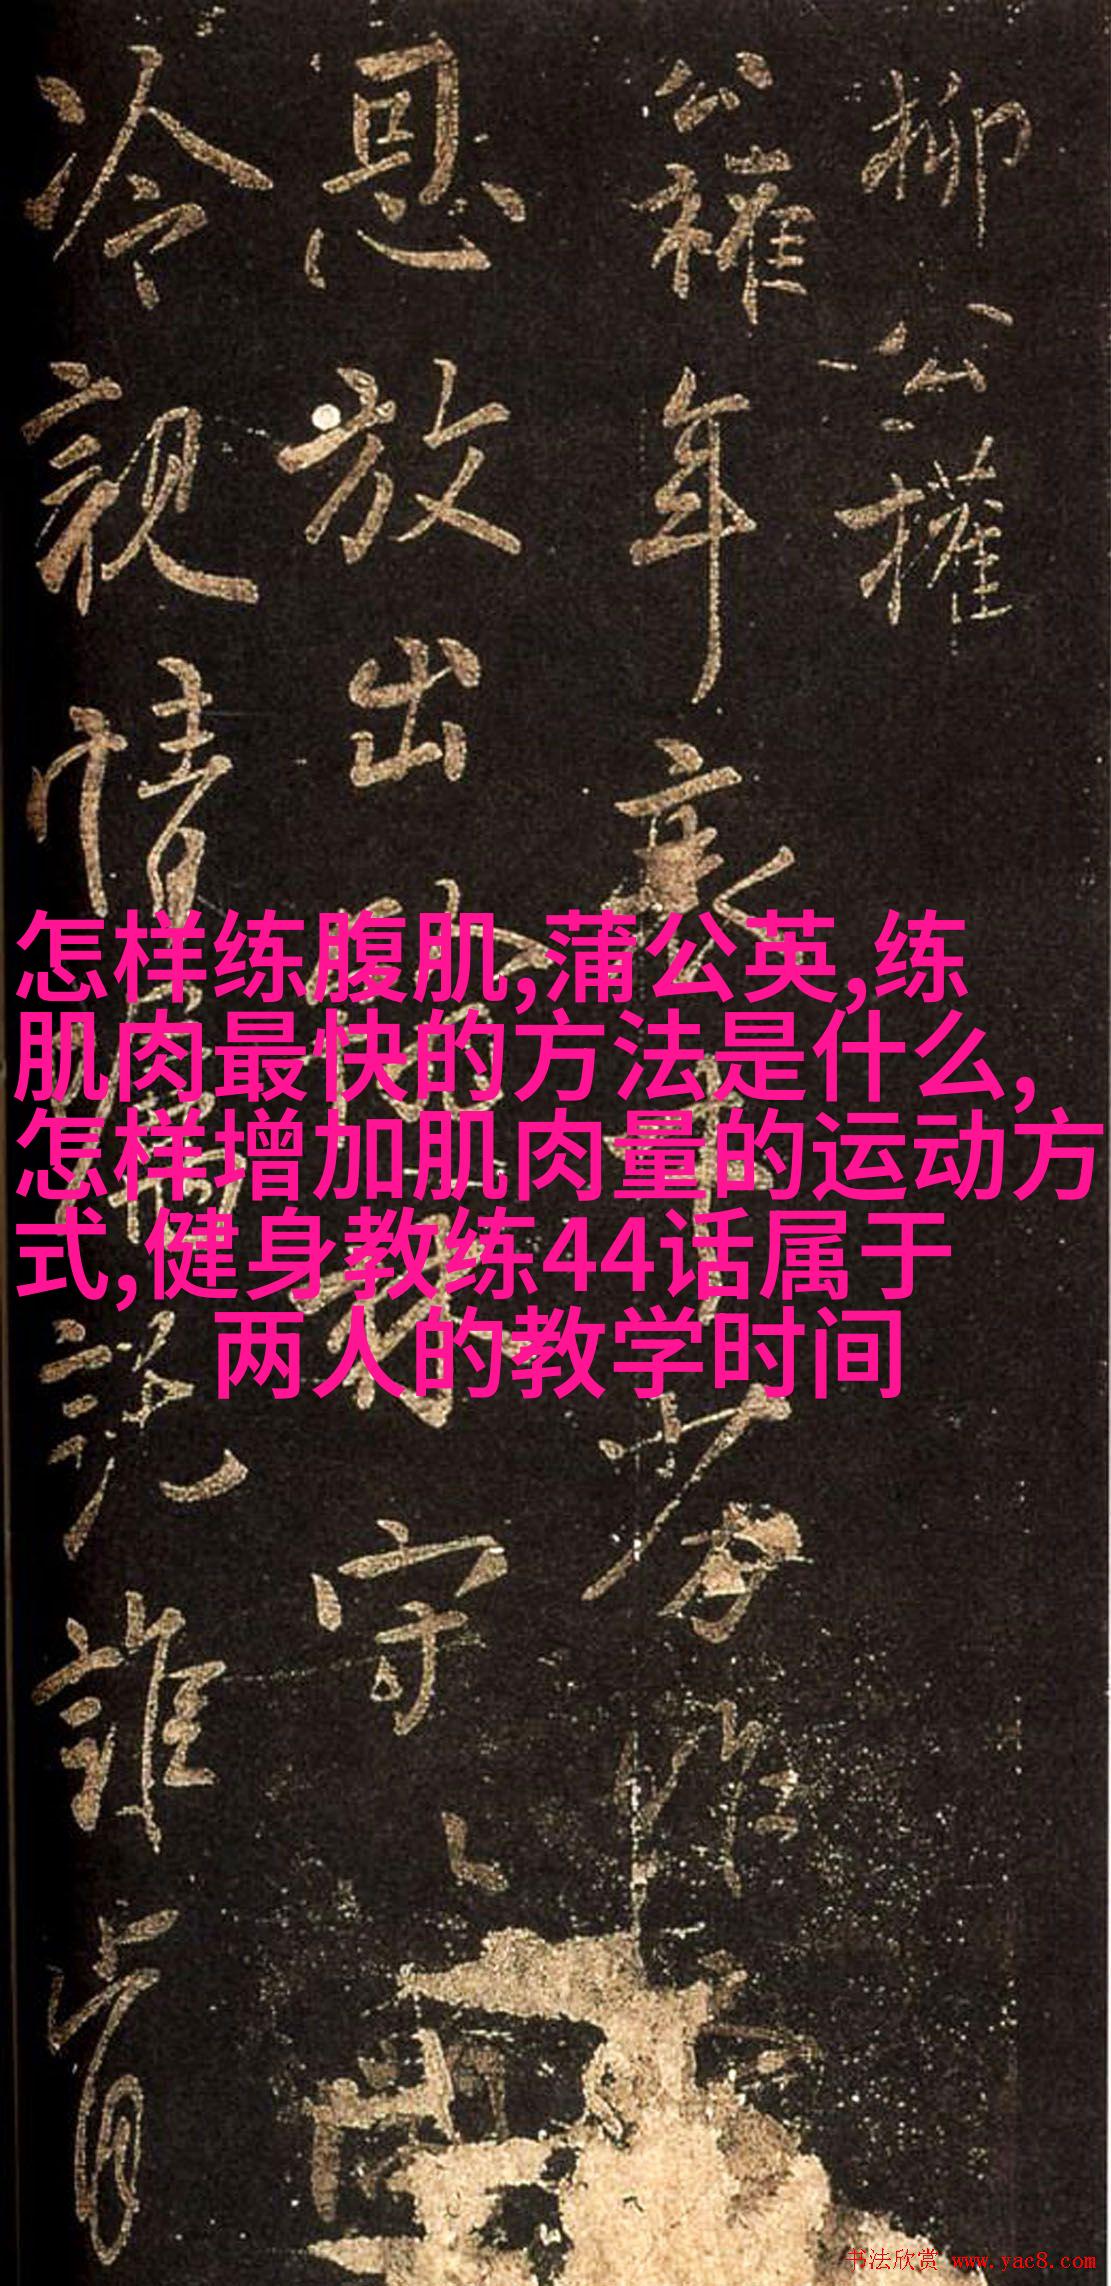 柳公權
公權年衰才劣昨
恩放出翰林守
冷親情囑託誰肯
怎样练腹肌,蒲公英,练
肌肉最快的方法是什么,
怎样增加肌肉量的运动方
式,健身教练44话属于
两人的教学时间
书法欣赏 www.yac8.com